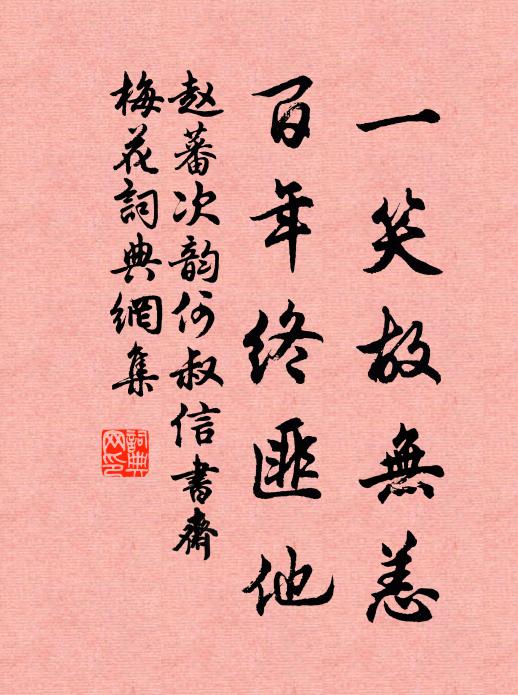 一笑故無恙
百年終匪他
赵蕃次韵何叔信書齋
梅花詞典網集
詞典
网印